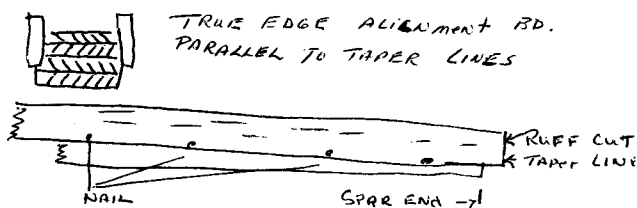 TRUE EDGE ALIGNMENT BD.
PARALLEL TO TAPER LINES
RUFF CUT
TAPER LINE
NAIL
SPAR END